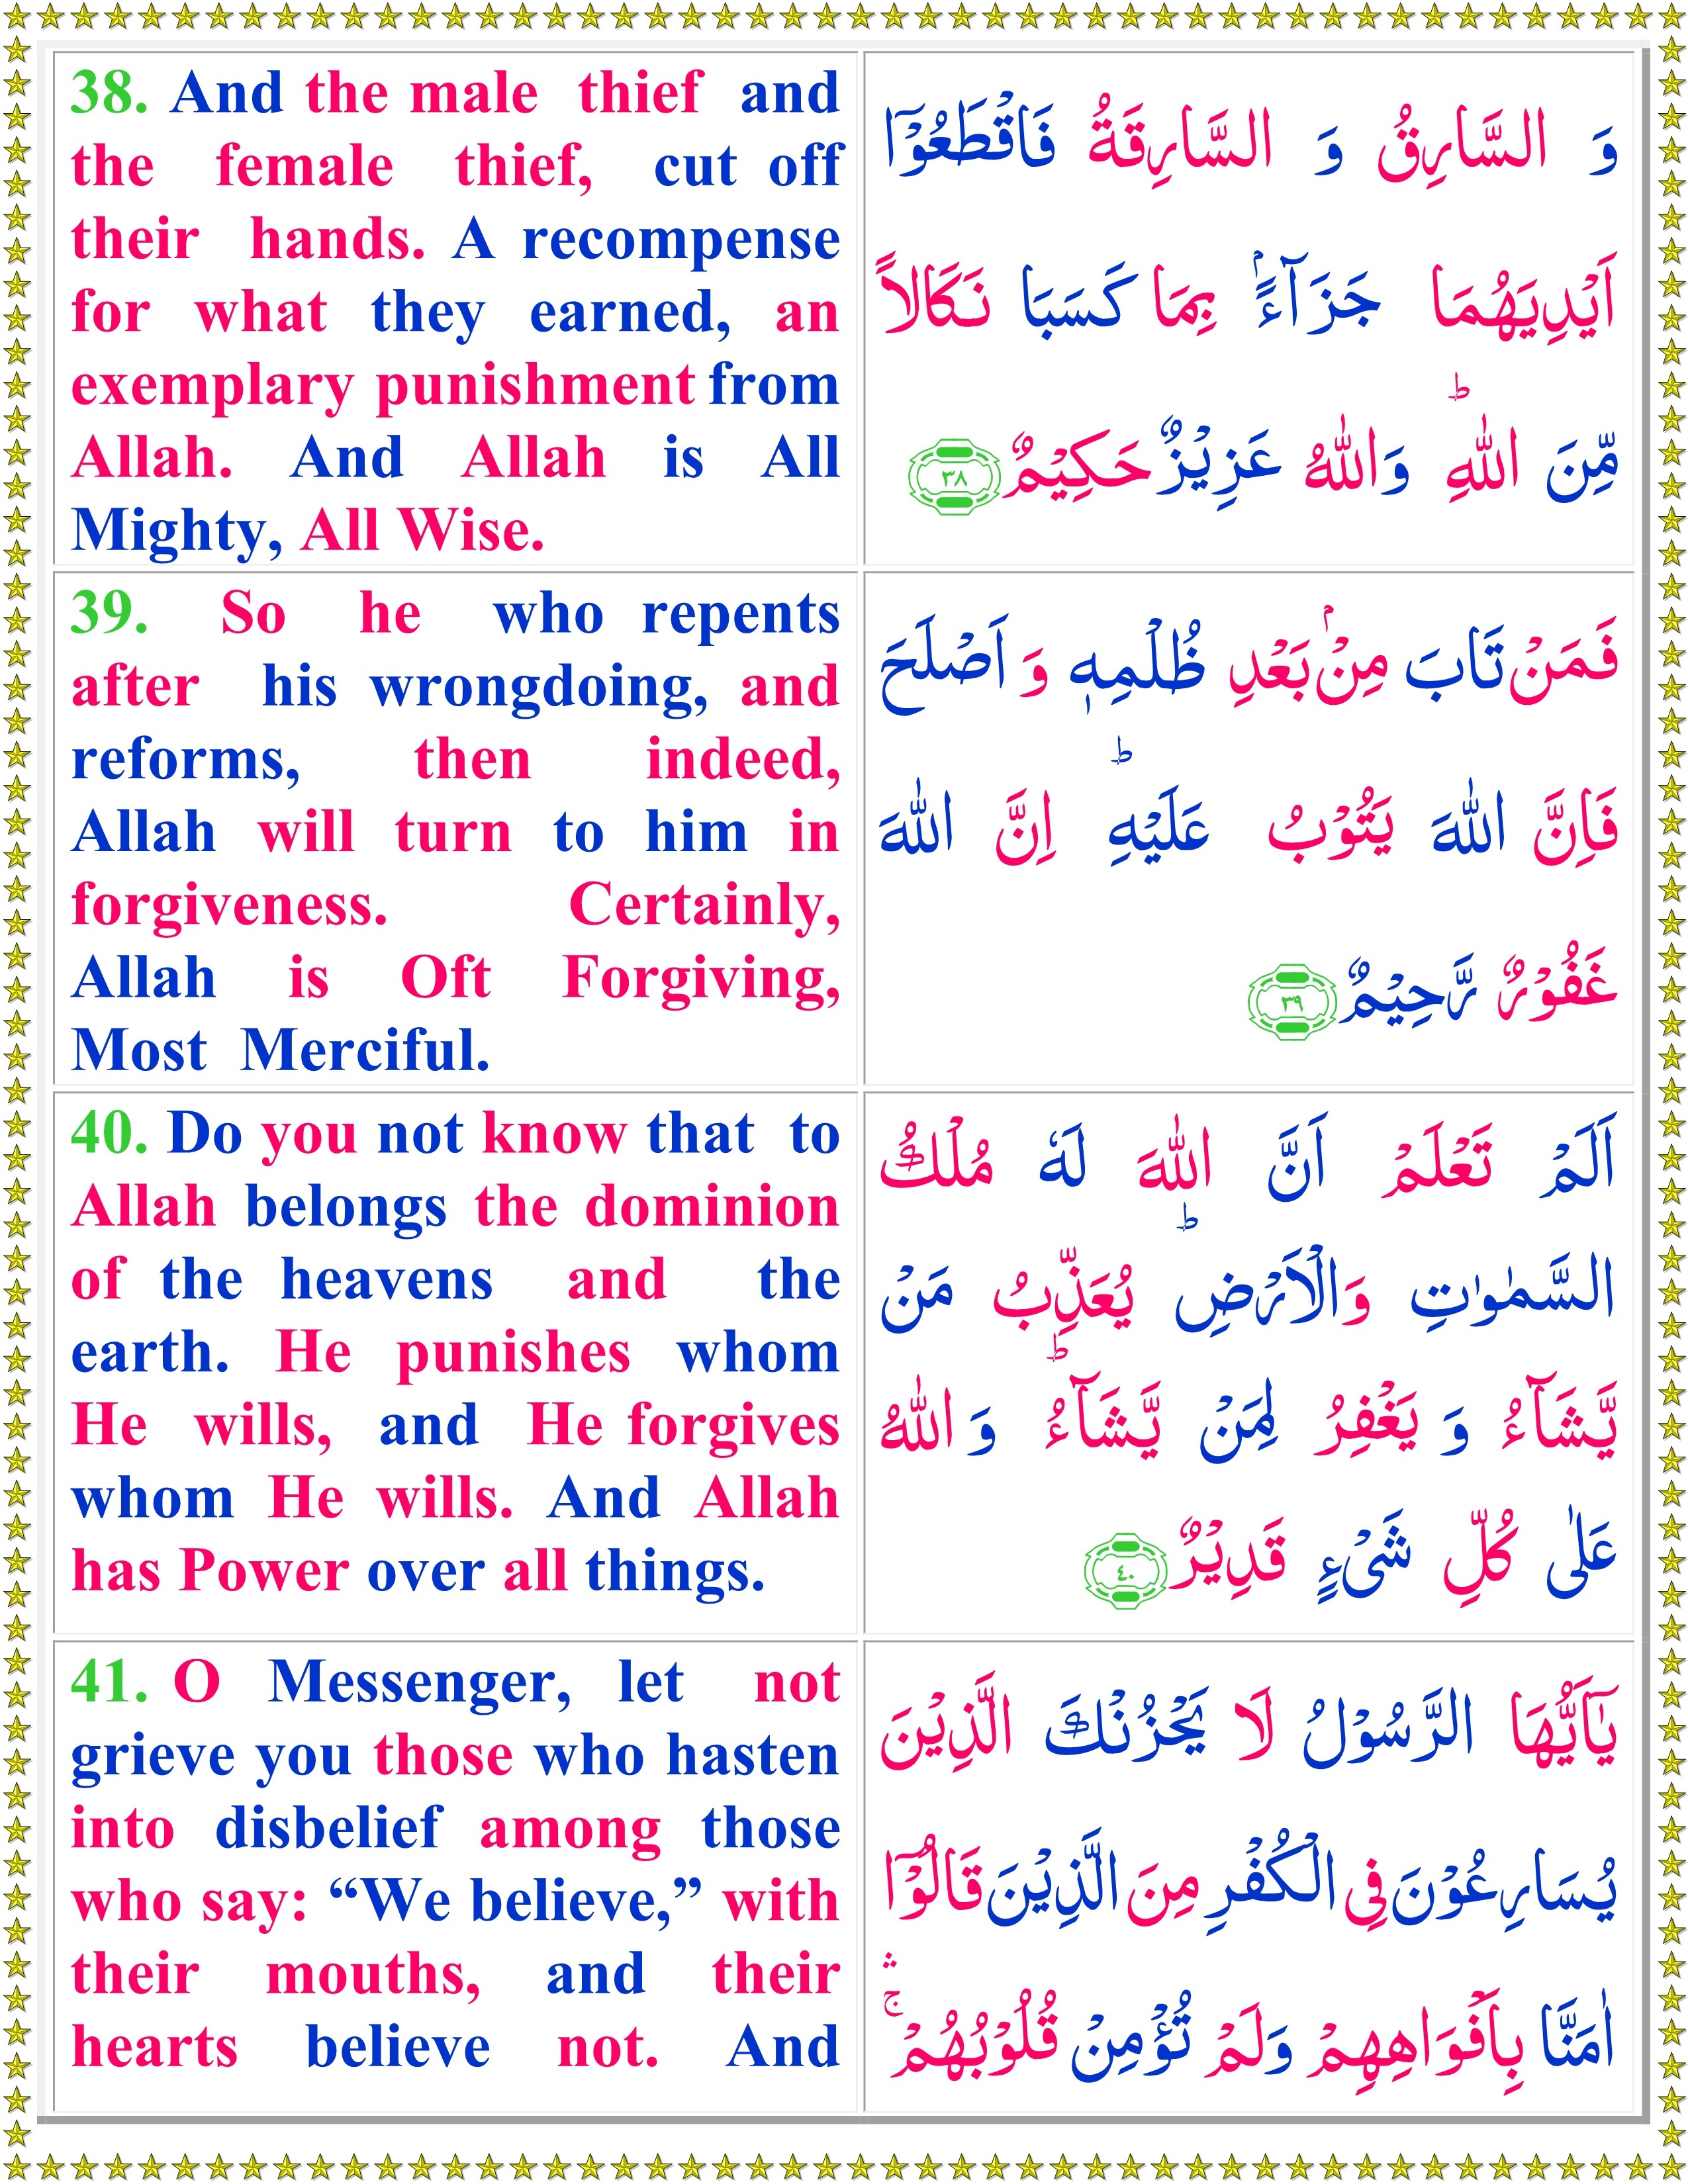 38. And the male thief and
the female thief, cut off
their hands. A recompense
for what they earned, an
exemplary punishment from
Allah. And Allah is All
Mighty, All Wise.
وَ السَّارِقُ وَ السَّارِقَةُ فَاقْطَعُوْۤا
اَيْدِيَهُمَا جَزَآءًۢ بِمَا كَسَبَا نَكَالًا
مِّنَ اللّٰهِ ؕ وَاللّٰهُ عَزِيْزٌ حَكِيْمٌ ٣٨
39. So he who repents
after his wrongdoing, and
reforms, then indeed,
Allah will turn to him in
forgiveness. Certainly,
Allah is Oft Forgiving,
Most Merciful.
فَمَنْ تَابَ مِنْۢ بَعْدِ ظُلْمِهٖ وَ اَصْلَحَ
فَاِنَّ اللّٰهَ يَتُوْبُ عَلَيْهِ ؕ اِنَّ اللّٰهَ
غَفُوْرٌ رَّحِيْمٌ ٣٩
40. Do you not know that to
Allah belongs the dominion
of the heavens and the
earth. He punishes whom
He wills, and He forgives
whom He wills. And Allah
has Power over all things.
اَلَمْ تَعْلَمْ اَنَّ اللّٰهَ لَهٗ مُلْكُ
السَّمٰوٰتِ وَالْاَرْضِ ؕ يُعَذِّبُ مَنْ
يَّشَآءُ وَ يَغْفِرُ لِمَنْ يَّشَآءُ ؕ وَ اللّٰهُ
عَلٰى كُلِّ شَىْءٍ قَدِيْرٌ ٤٠
41. O Messenger, let not
grieve you those who hasten
into disbelief among those
who say: “We believe,” with
their mouths, and their
hearts believe not. And
يٰۤاَيُّهَا الرَّسُوْلُ لَا يَحْزُنْكَ الَّذِيْنَ
يُسَارِعُوْنَ فِى الْكُفْرِ مِنَ الَّذِيْنَ قَالُوْۤا
اٰمَنَّا بِاَفْوَاهِهِمْ وَلَمْ تُؤْمِنْ قُلُوْبُهُمْ ۛۚ